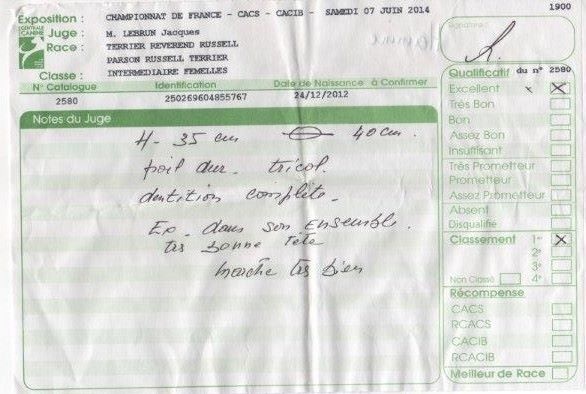 1900
SOCIETE CENTRALE CANINE
Exposition : CHAMPIONNAT DE FRANCE - CACS - CACIB - SAMEDI 07 JUIN 2014
Juge : M. LEBRUN Jacques
Race : TERRIER REVEREND RUSSELL
PARSON RUSSELL TERRIER
Classe : INTERMEDIAIRE FEMELLES
Signature :
N° Catalogue Identification Date de Naissance à Confirmer
2580 250269604855767 24/12/2012
Notes du Juge
H - 35 cm 40 cm.
poil dur - tricol.
dentition complète -
Ex. dans son ensemble.
très bonne tête
marche très bien
Qualificatif du n° 2580
Excellent x X
Très Bon
Bon
Assez Bon
Insuffisant
Très Prometteur
Prometteur
Assez Prometteur
Absent
Disqualifié
Classement 1er X
2e
3e
Non Classé 4e
Récompense
CACS
RCACS
CACIB
RCACIB
Meilleur de Race